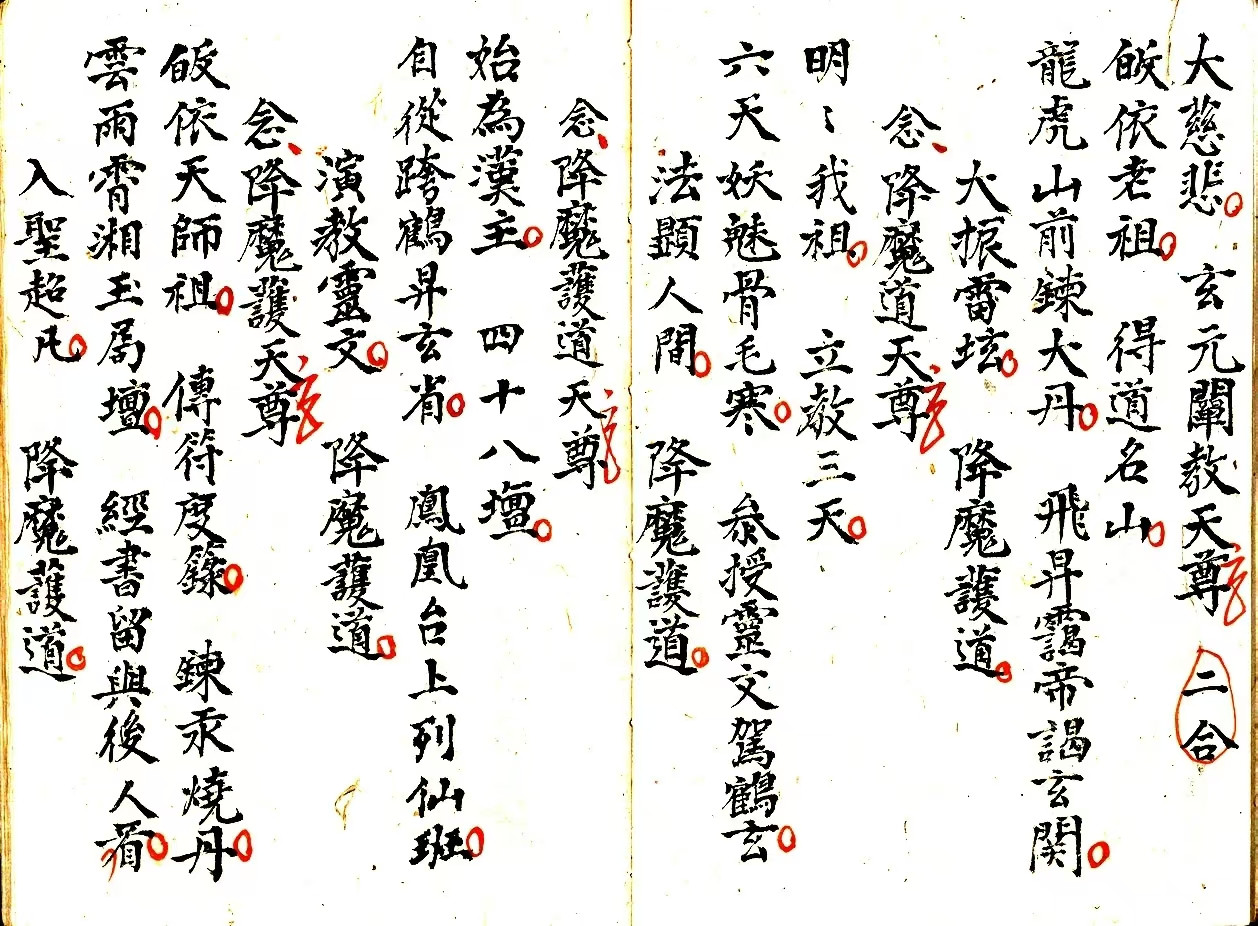 大慈悲。 玄元闡教天尊 二合
皈依老祖。 得道名山。
龍虎山前鍊大丹。 飛昇靄帝謁玄関。
大振雷坛。 降魔護道。
念、降魔護道天尊
明〻我祖。 立教三天。
六天妖魅骨毛寒。 叅授靈文駕鶴玄。
法顕人間。 降魔護道。
念、降魔護道天尊
始為漢主。 四十八壇。
自從跨鶴昇玄省。 鳳凰台上列仙班。
演教靈文。 降魔護道。
念、降魔護天尊
皈依天師祖。 傳符度籙。 鍊汞燒丹。
雲雨霄湘玉局壇。 經書留與後人看。
入聖超凡。 降魔護道。